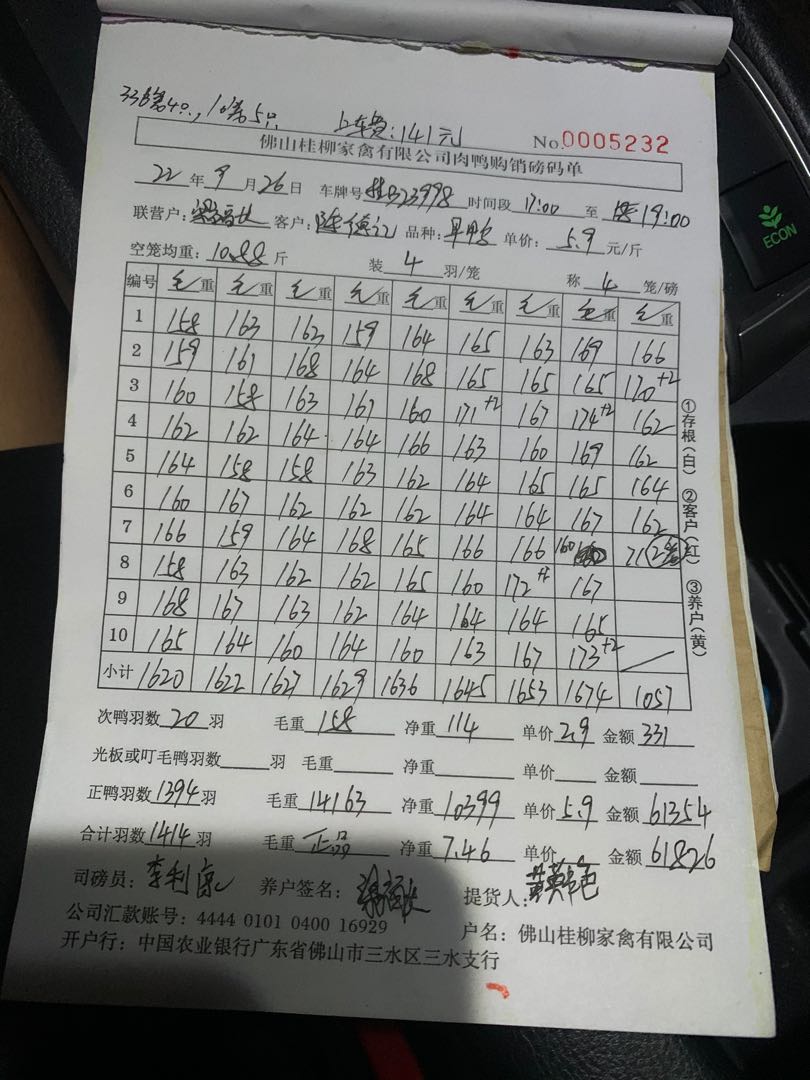 338笼4只, 10笼5只 上车费:141元
No.0005232
佛山桂柳家禽有限公司肉鸭购销磅码单
22年9月26日 车牌号 23998 时间段 17:00 至 19:00
联营户: 客户:陈德记 品种:旱鸭 单价:5.9元/斤
空笼均重:10.88斤 装4羽/笼 称4笼/磅
编号 毛重 毛重 毛重 毛重 毛重 毛重 毛重 毛重 毛重
1 158 163 162 159 164 165 163 169 166
2 159 161 168 164 168 165 165 165 170+2
3 160 158 163 161 160 171+2 167 174+2 162
4 162 162 164 164 166 163 160 169 162
5 164 158 158 163 162 164 165 165 164
6 160 167 162 162 162 164 164 167 162
7 166 159 164 168 165 166 166 160 71(2笼)
8 158 163 162 162 165 160 172+2 167
9 168 167 163 162 164 164 164 165
10 165 164 160 164 160 163 167 173+2
小计 1620 1622 1627 1629 1636 1645 1653 1674 1057
①存根(白) ②客户(红) ③养户(黄)
次鸭羽数20羽 毛重158 净重114 单价2.9 金额331
光板或叮毛鸭羽数 羽 毛重 净重 单价 金额
正鸭羽数1394羽 毛重14163 净重10399 单价5.9 金额61354
合计羽数1414羽 毛重正品 净重7.46 单价 金额61826
司磅员:李利 养户签名: 提货人:
公司汇款账号:4444 0101 0400 16929 户名:佛山桂柳家禽有限公司
开户行:中国农业银行广东省佛山市三水区三水支行
ECON